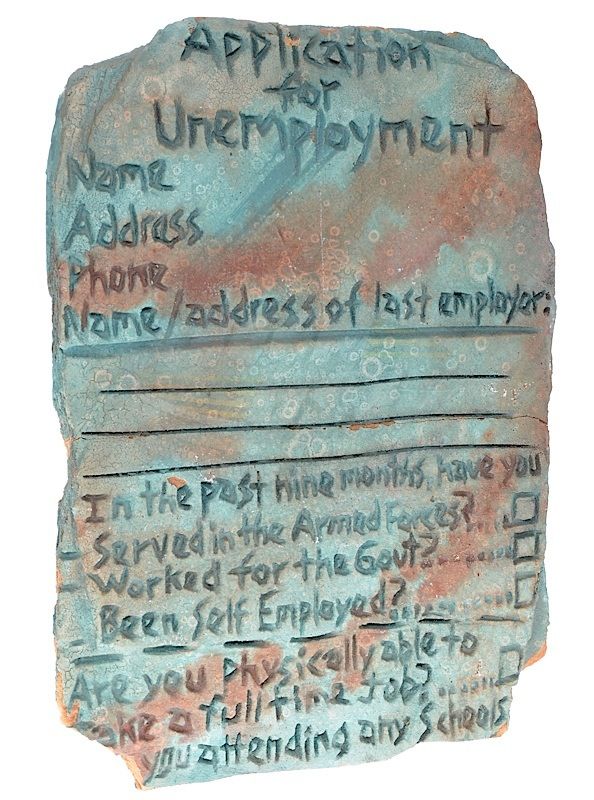 Application
for
Unemployment
Name
Address
Phone
Name/address of last employer:
In the past nine months, have you
Served in the Armed Forces?...
Worked for the Govt?.........
Been Self Employed?..........
Are you physically able to
take a full time Job?......
you attending any Schools